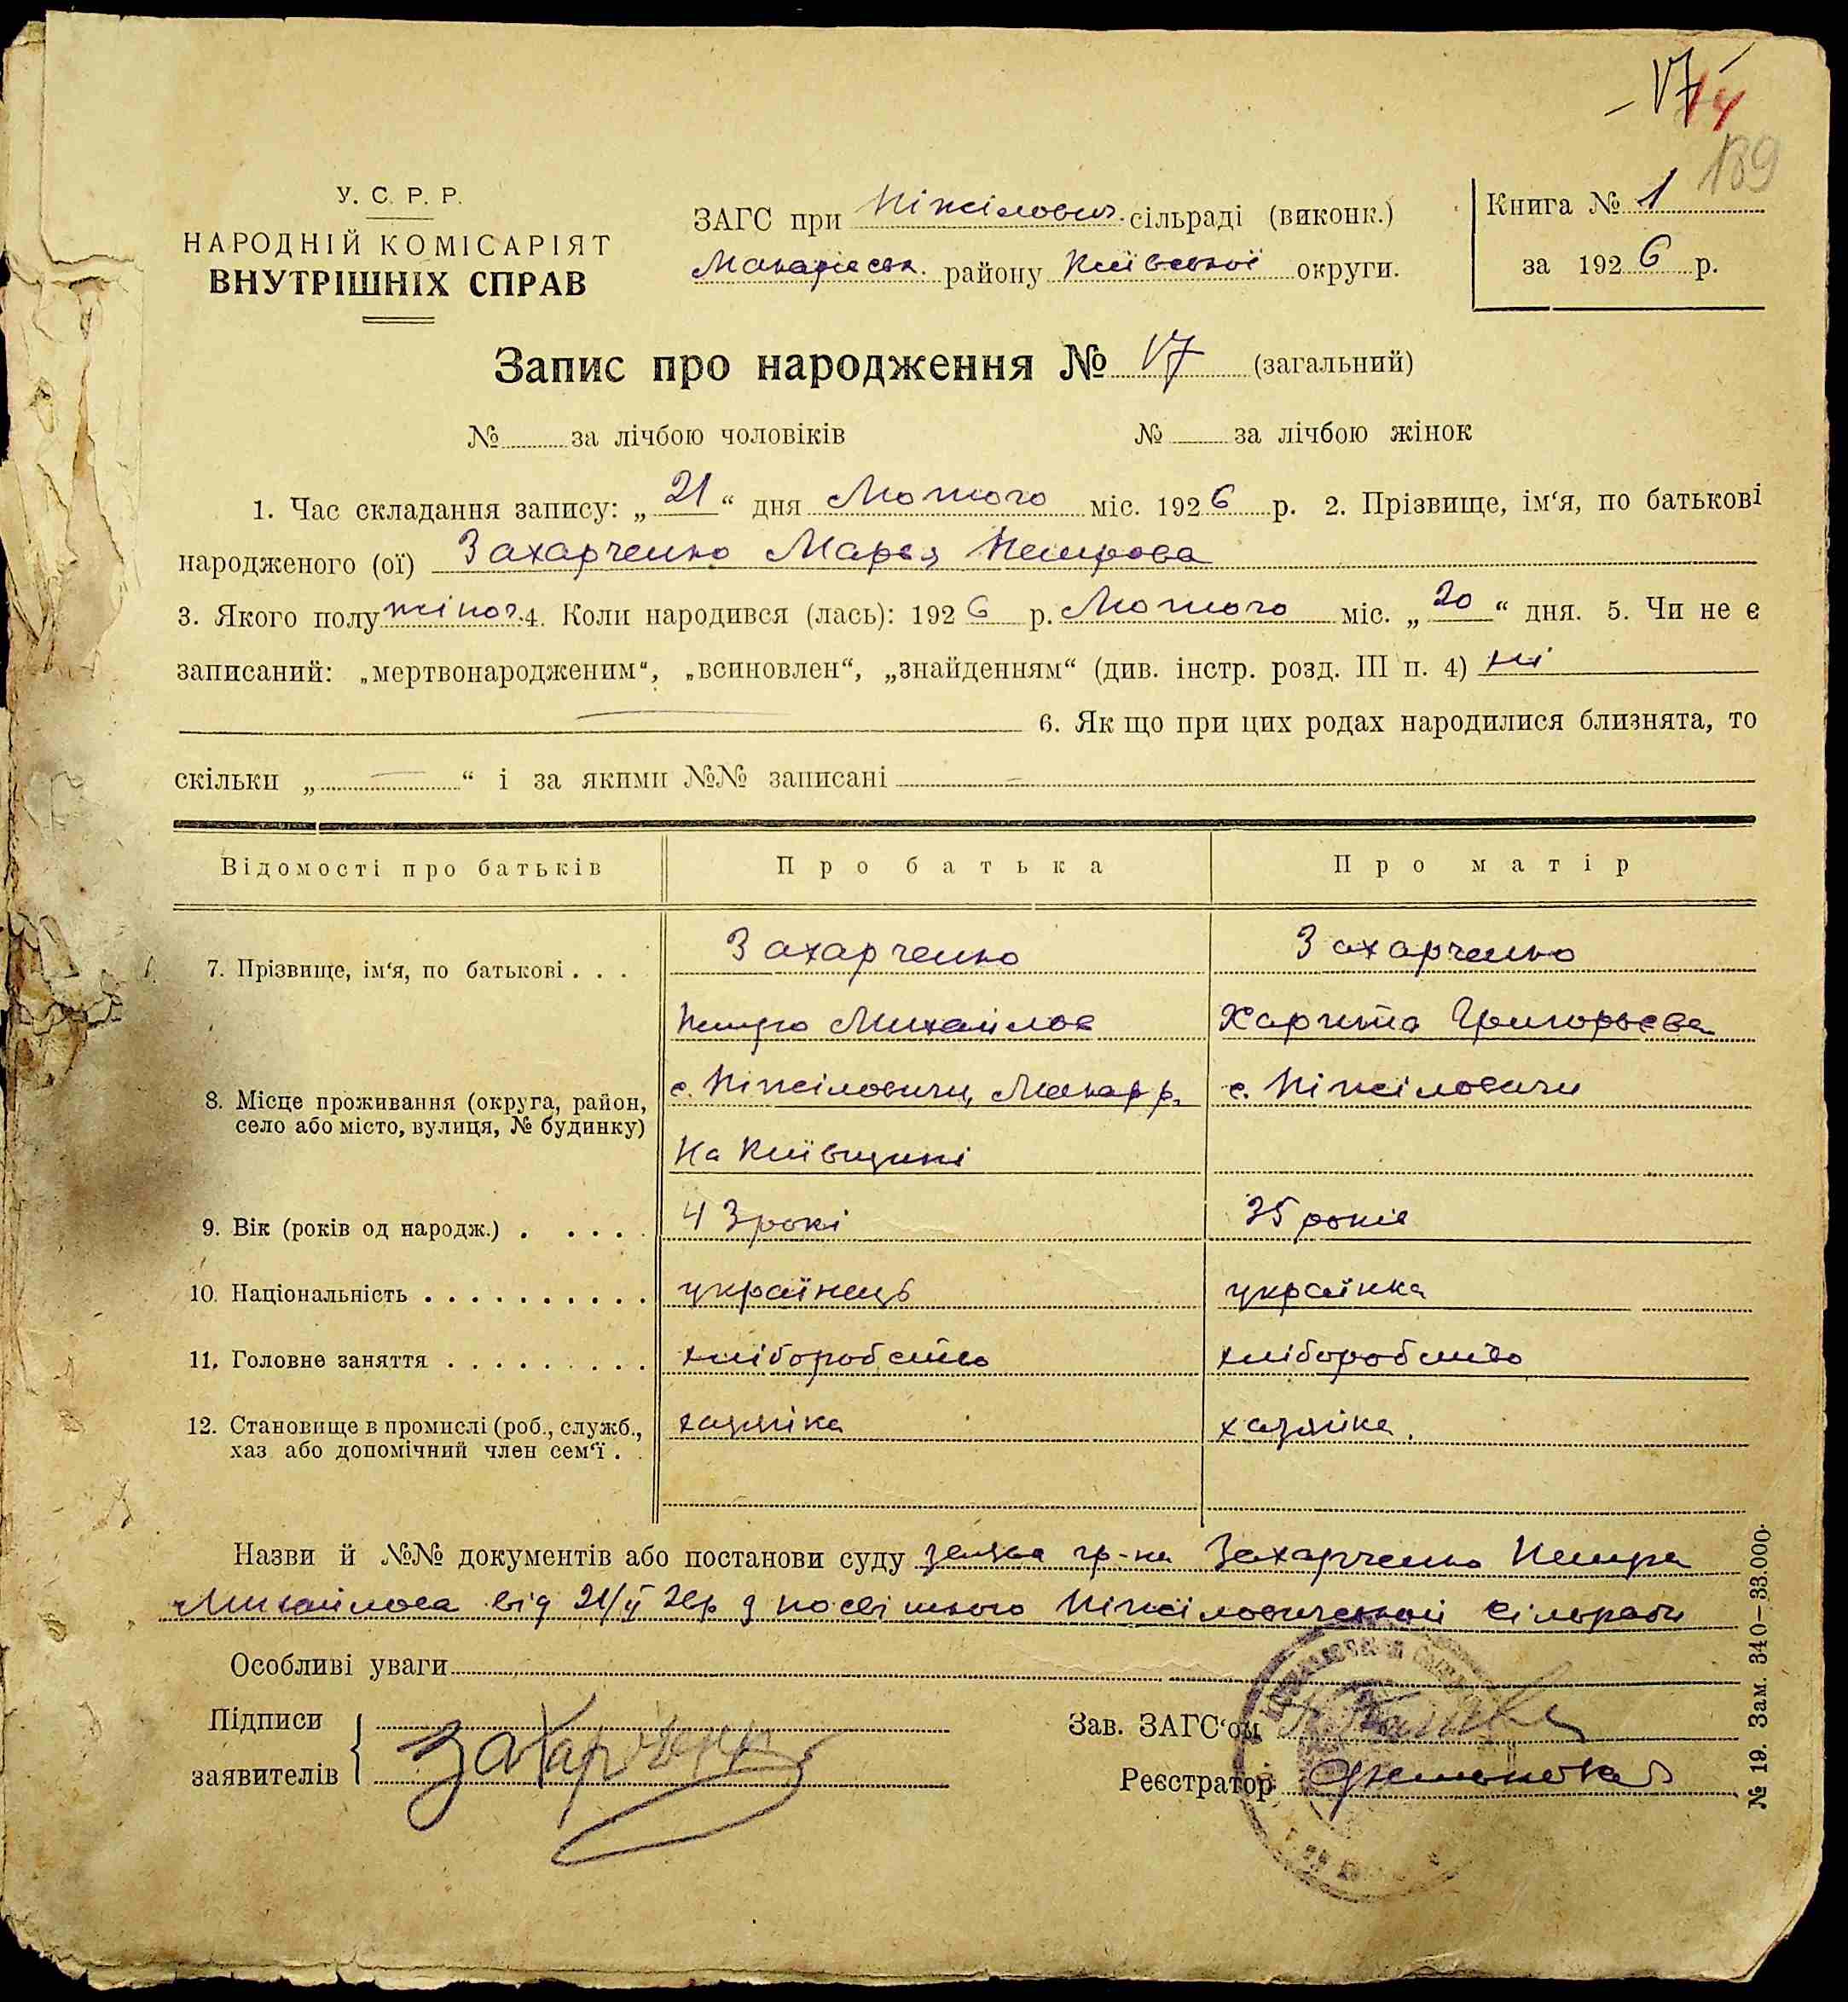 17
14
189
У. С. Р. Р.
НАРОДНІЙ КОМІСАРІЯТ
ВНУТРІШНІХ СПРАВ
ЗАГС при Ніжілович. сільраді (виконк.)
Макарівськ. району Київської округи.
Книга № 1
за 1926 р.
Запис про народження № 17 (загальний)
№ за лічбою чоловіків № за лічбою жінок
1. Час складання запису: „21“ дня Лютого міс. 1926 р. 2. Прізвище, ім‘я, по батькові
народженого (ої) Захарченко Марья Петрова
3. Якого полу жіноч. 4. Коли народився (лась): 1926 р. Лютого міс. „20“ дня. 5. Чи не є
записаний: „мертвонародженим“, „всиновлен“, „знайденням“ (див. інстр. розд. III п. 4) ні
6. Як що при цих родах народилися близнята, то
скільки „ “ і за якими №№ записані
Відомості про батьків Про батька Про матір
7. Прізвище, ім‘я, по батькові . . . Захарченко Захарченко
Петро Михайлов Харитa Григорьева
8. Місце проживання (округа, район, село або місто, вулиця, № будинку) с. Ніжіловичи, Макар р. с. Ніжіловичи
На Київщині
9. Вік (років од народж.) . . . . . 43 рокі 35 років
10. Національність . . . . . . . . . . українець українка
11. Головне заняття . . . . . . . . . хліборобство хліборобство
12. Становище в промислі (роб., служб., хазяйка хазяйка.
хаз або допомічний член сем‘ї . .
Назви й №№ документів або постанови суду заява гр-на Захарченко Петра
Михайлова від 21/II 26р посвітного Ніжіловической сільради
Особливі уваги
Підписи
заявителів Захарченко
Зав. ЗАГС‘ом
Реєстратор
№ 19. Зам. 340—33.000.